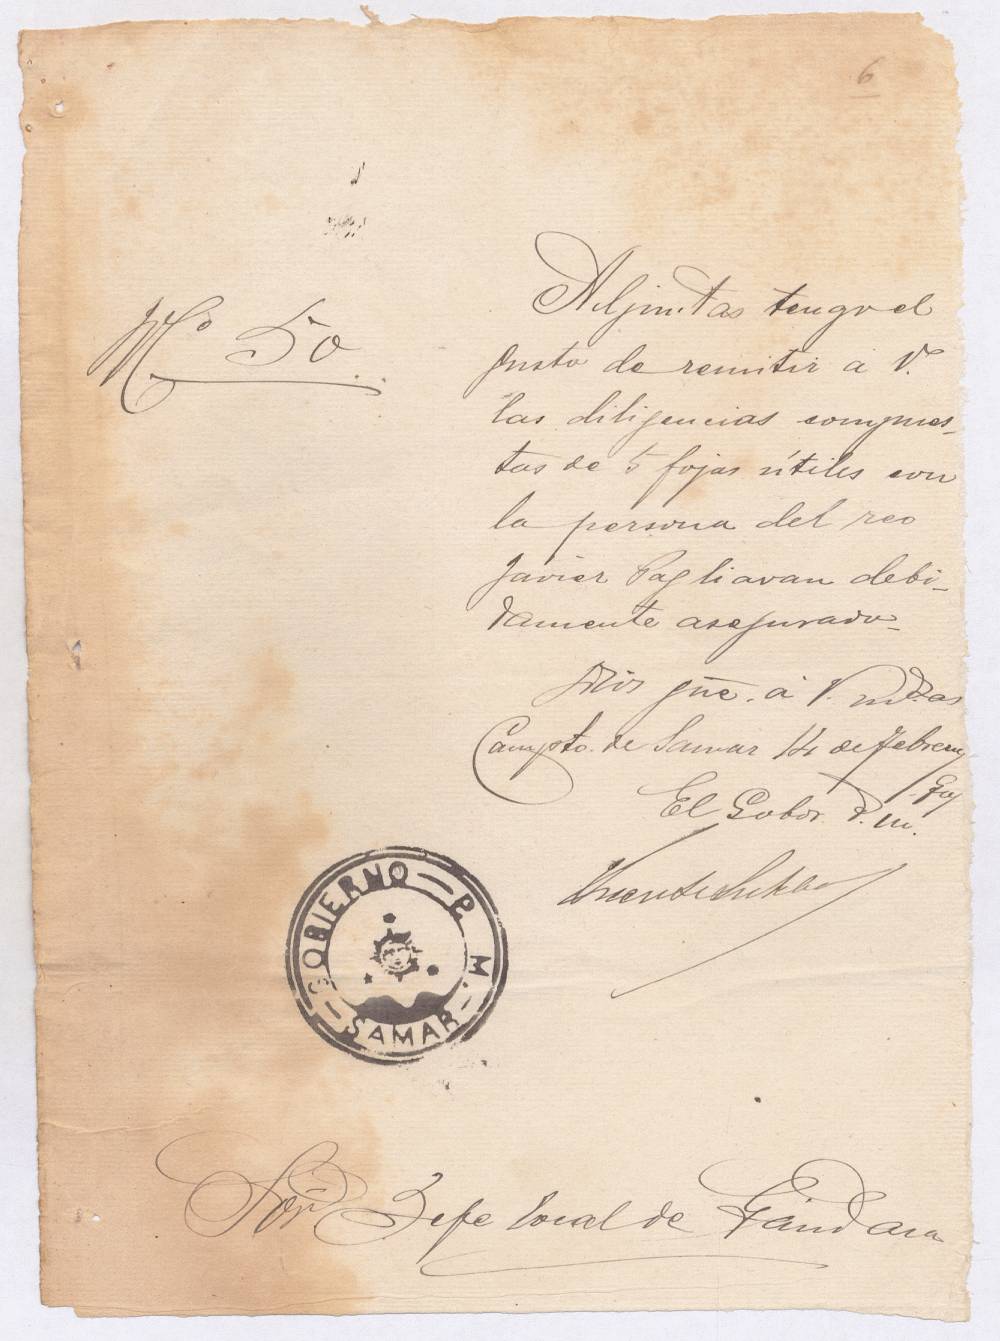 6
Nº 50.
Adjuntas tengo el
gusto de remitir á V.
las diligencias compues-
tas de 5 fojas útiles con
la persona del reo
Javier Pagliavan debi-
damente asegurado-
Dios gũe. á V. m.s as
Campto. de Samar 14 de Febrero
El Gobor. P. M.
GOBIERNO P. M.
SAMAR
Sor. Jefe local de Gándara